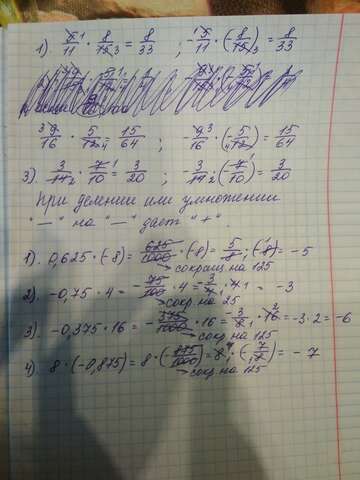 1). 5/11 · 8/15 3 = 8/33 ; -1 5/11 · (-8/15) 3 = 8/33
3 9/16 · 5/12 4 = 15/64 ; -9 3/16 · (-5/4 12) = 15/64
3) 3/14 2 · 7 1/10 = 3/20 ; -3/14 2 · (-7 1/10) = 3/20
При делении или умножении
"—" на "—" даёт "+".
1). 0,625·(-8) = 625/1000 · (-8) = 5/8 1 · (-8 1) = -5
сокращ на 125
2). -0,75·4 = -75/100 · 4 = -3/4 1 · 4 1 = -3
сокр на 25
3) -0,375·16 = -375/1000 · 16 = -3/8 1 · 16 2 = -3·2 = -6
сокр на 125
4). 8·(-0,875) = 8·(-875/1000) = 8 1 · (-7/8 1) = -7
сокр на 125